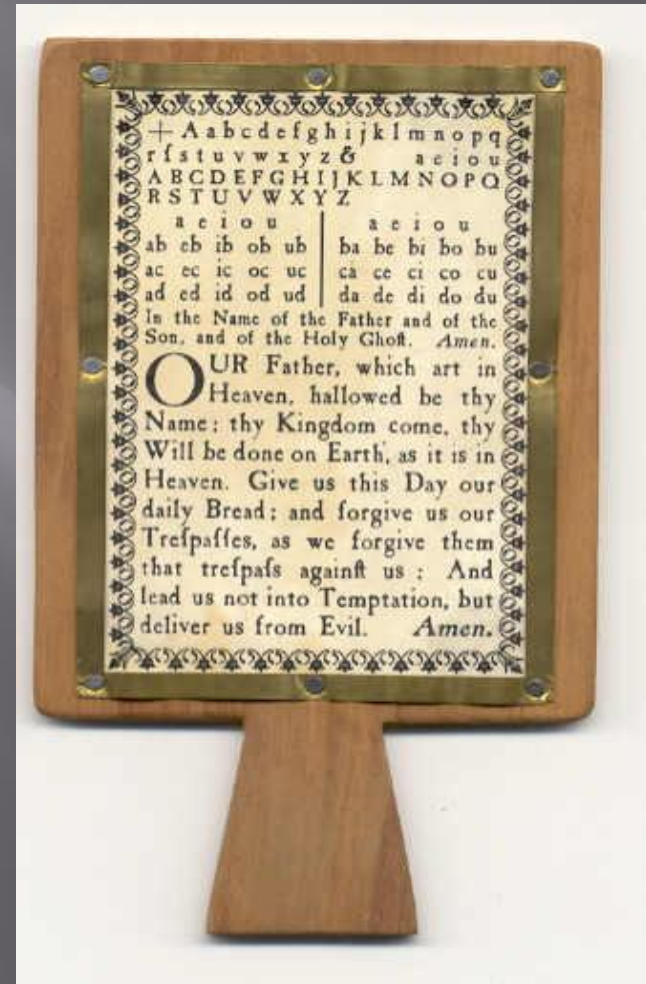 + A a b c d e f g h i j k l m n o p q
r ſ s t u v w x y z & a e i o u
A B C D E F G H I J K L M N O P Q
R S T U V W X Y Z
a e i o u a e i o u
ab eb ib ob ub ba be bi bo bu
ac ec ic oc uc ca ce ci co cu
ad ed id od ud da de di do du
In the Name of the Father and of the
Son, and of the Holy Ghoſt. Amen.
OUR Father, which art in
Heaven, hallowed be thy
Name; thy Kingdom come, thy
Will be done on Earth, as it is in
Heaven. Give us this Day our
daily Bread; and forgive us our
Treſpaſſes, as we forgive them
that treſpaſs againſt us : And
lead us not into Temptation, but
deliver us from Evil. Amen.